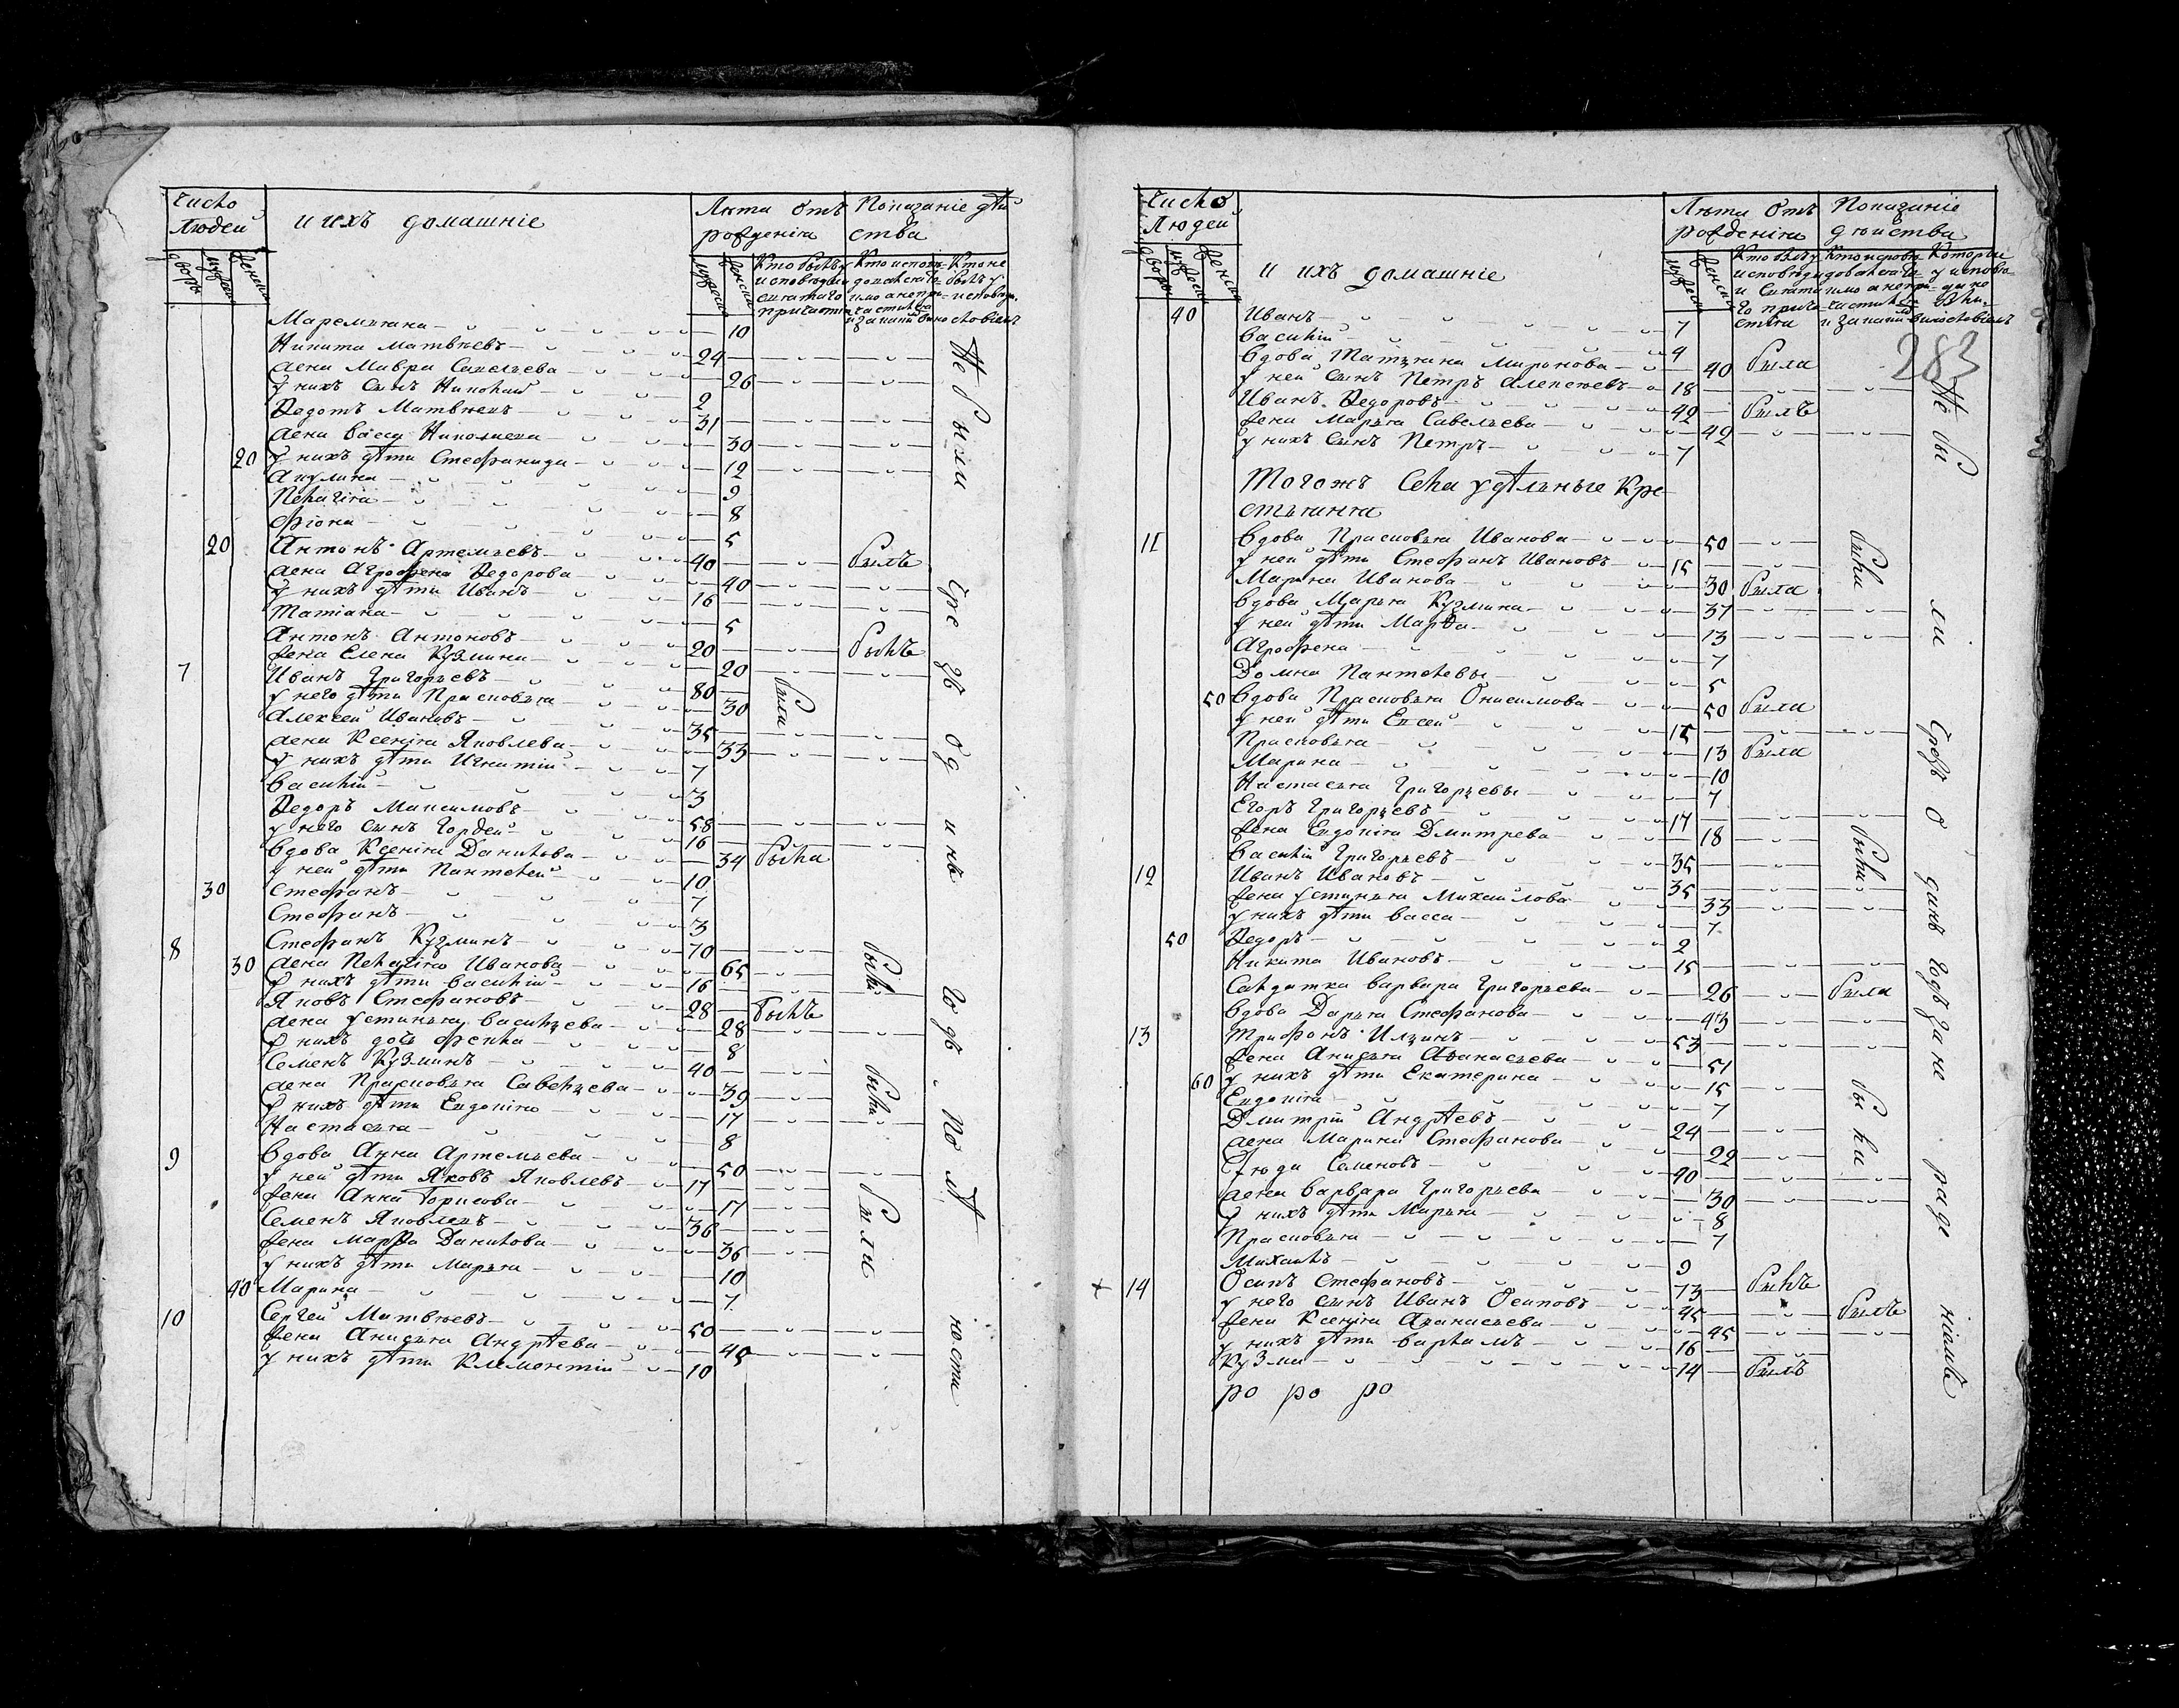 Число Людей
и ихъ домашніе
Лѣта отъ рожденія
Показаніе дѣйства
дворы
мужеска
женска
мужеска
женска
Кто былъ у исповѣди и святаго причастія
Кто исповѣдовался токмо а не причастился
Кто не былъ у исповѣди
Маремьяна 10
Никита Матвѣевъ 24
жена Мавра Савельева 26
у нихъ сынъ Николай 2
Ѳедотъ Матвѣевъ 31
жена Васса Николаева 30
20 у нихъ дѣти Стефанида 12
Акулина 9
Пелагія 8
Фіона 5
20 Антонъ Артемьевъ 40 былъ
жена Агрофена Ѳедорова 40
у нихъ дѣти Иванъ 16
Татіана 5
Антонъ Антоновъ 20 былъ
жена Елена Кузмина 20
7 Иванъ Григорьевъ 80
у него дѣти Прасковья 30 были
Алексей Ивановъ 35
жена Ксенія Яковлева 33
у нихъ дѣти Игнатій 7
Василій 3
Ѳедоръ Максимовъ 58
у него сынъ Гордей 16
Вдова Ксенія Данилова 34 была
у ней дѣти Пантелей 10
30 Стефанъ 7
Стефанъ 3
8 Стефанъ Кузминъ 70
30 жена Пелагія Иванова 65 были
у нихъ дѣти Василій 16
Яковъ Стефановъ 28 былъ
жена Устинья Васильева 28
у нихъ дочь Фекла 8
Семенъ Кузминъ 40
жена Прасковья Савельева 39 были
у нихъ дѣти Евдокія 17
Настасья 8
9 Вдова Анна Артемьева 50
у ней дѣти Яковъ Яковлевъ 17
жена Анна Борисова 17
Семенъ Яковлевъ 36 были
жена Марѳа Данилова 36
у нихъ дѣти Марья 10
40 Марина 7
10 Сергей Матвѣевъ 50
жена Анисья Андрѣева 49
у нихъ дѣти Климентій 10
Не были
годѣ
по
Число Людей
и ихъ домашніе
Лѣта отъ рожденія
Показаніе дѣйства
дворы
женска
женска
283
40 Иванъ 7
Василій 4
Вдова Татьяна Миронова 40 была
у ней сынъ Петръ Алексѣевъ 18
Иванъ Ѳедоровъ 42 былъ
жена Марья Савельева 42
у нихъ сынъ Петръ 7
Тогожъ Села удѣльные Кре-
стьяня
11 Вдова Прасковья Иванова 50
у ней дѣти Стефанъ Ивановъ 15 были
Марина Иванова 30 была
Вдова Марья Кузмина 37
у ней дѣти Марѳа 13
Агрофена 7
Домна Пантелевы 5
50 Вдова Прасковья Онисимова 50 была
у ней дѣти Елсей 15
Прасковья 13 была
Марина 10
Настасья Григорьевы 7
Егоръ Григорьевъ 17
жена Евдокія Дмитрева 18
Василій Григорьевъ 35 были
12 Иванъ Ивановъ 35
жена Устинья Михайлова 33
у нихъ дѣти Васса 7
50 Ѳедоръ 2
Никита Ивановъ 15
Салдатка Варвара Григорьева 26 была
Вдова Дарья Стефанова 43
13 Трифонъ Ильинъ 53
жена Анисья Аѳанасьева 51
60 у нихъ дѣти Екатерина 15
Евдокія 7 были
Дмитрій Андрѣевъ 24
жена Марина Стефанова 22
Семеновъ 40
жена Варвара Григорьева 30
у нихъ дѣти Марья 8
Прасковья 7
Михаилъ 9
14 Осипъ Стефановъ 73 былъ
у него сынъ Иванъ Осиповъ 45 былъ
жена Ксенія Аѳанасьева 45
у нихъ дѣти Варламъ 16
Кузма 14 былъ
ро ро ро
Не были
годъ за не